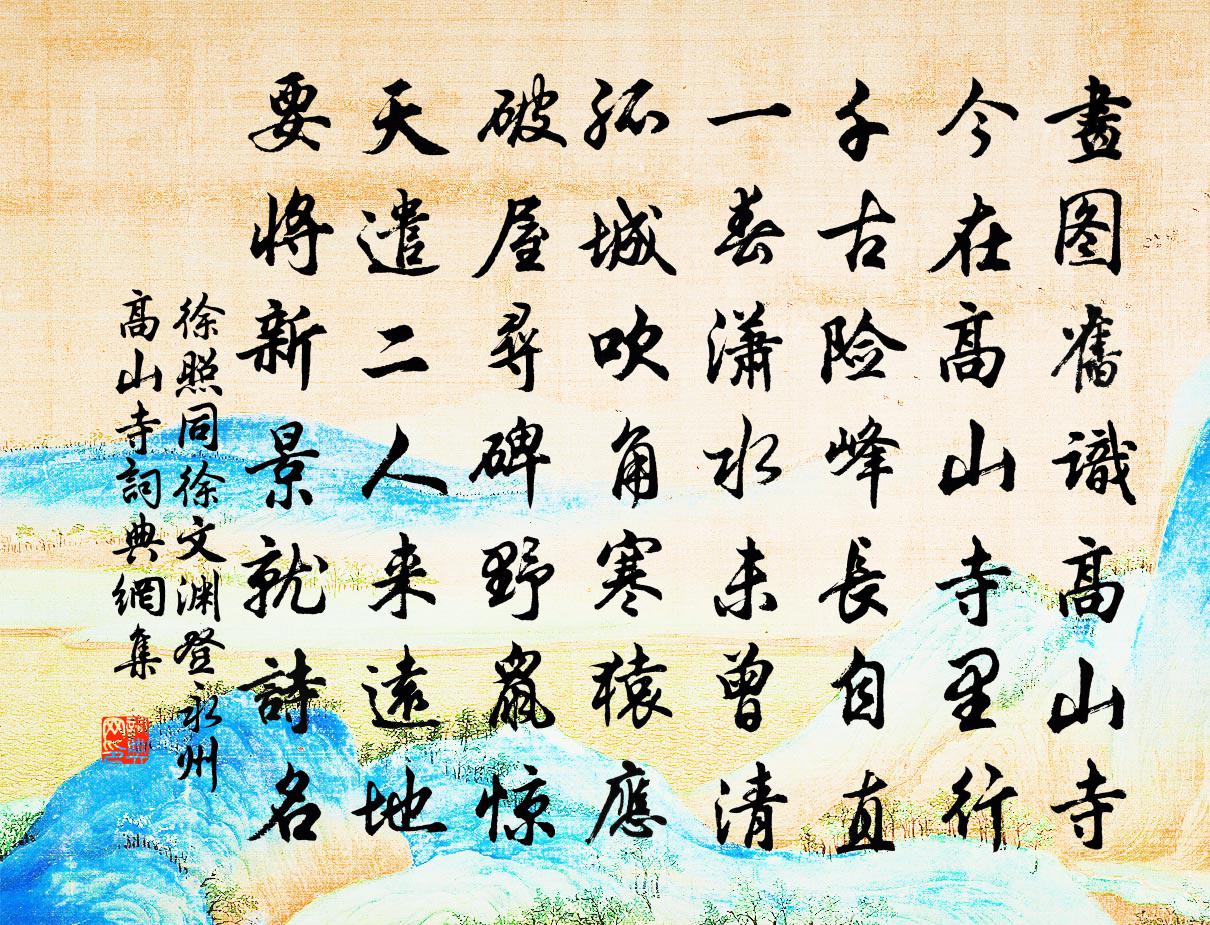 畫图舊識高山寺
今在高山寺里行
千古险峰長自直
一春潇水未曾清
孤城吹角寒猿應
破屋尋碑野鼠惊
天遣二人来遠地
要將新景就詩名
徐照同徐文渊登永州
高山寺詞典網集